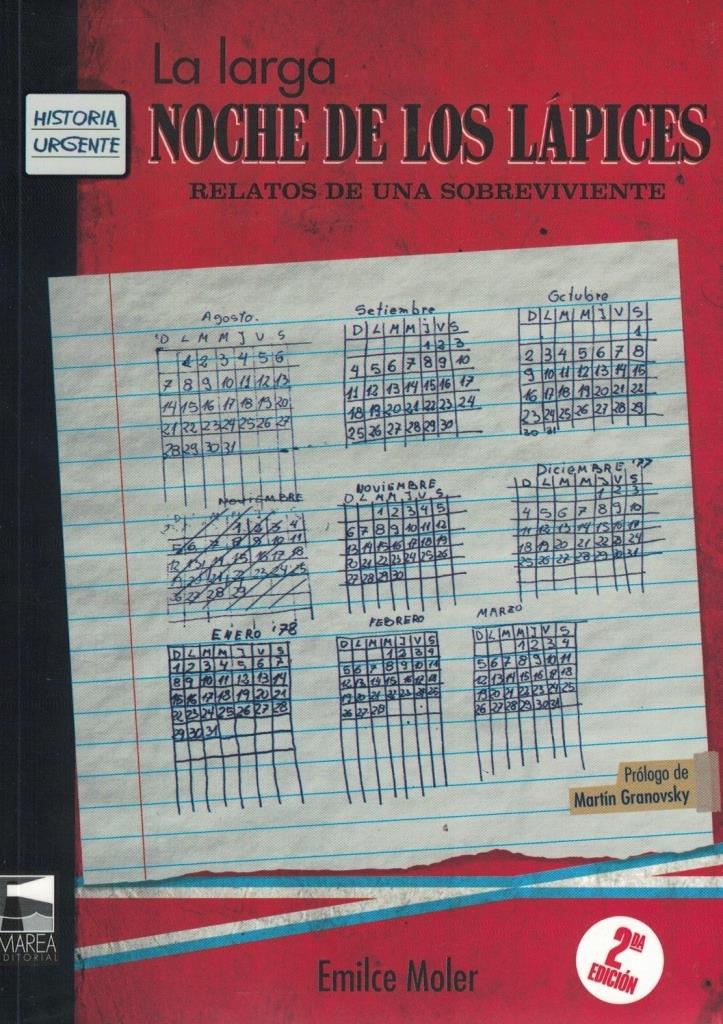 La larga
HISTORIA
URGENTE
NOCHE DE LOS LÁPICES
RELATOS DE UNA SOBREVIVIENTE
Agosto.
D L M M J V S
1 2 3 4 5 6
7 8 9 10 11 12 13
14 15 16 17 18 19 20
21 22 23 24 25 26 27
28 29 30 31
Setiembre
D L M M J V S
1 2 3
4 5 6 7 8 9 10
11 12 13 14 15 16 17
18 19 20 21 22 23 24
25 26 27 28 29 30
Octubre
D L M M J V S
1
2 3 4 5 6 7 8
9 10 11 12 13 14 15
16 17 18 19 20 21 22
23 24 25 26 27 28 29
30 31
NOVIEMBRE
1 2 3 4
5 6 7 8 9 10 11
12 13 14 15 16 17 18
19 20 21 22 23 24 25
26 27 28 29
NOVIEMBRE
D L M M J V S
1 2 3 4 5
6 7 8 9 10 11 12
13 14 15 16 17 18 19
20 21 22 23 24 25 26
27 28 29 30
DICIEMBRE '77
D L M M J V S
1 2 3
4 5 6 7 8 9 10
11 12 13 14 15 16 17
18 19 20 21 22 23 24
25 26 27 28 29 30 31
ENERO '78
D L M M J V S
1 2 3 4 5 6 7
8 9 10 11 12 13 14
15 16 17 18 19 20 21
22 23 24 25 26 27 28
29 30 31
FEBRERO
D L M M J V S
1 2 3 4
5 6 7 8 9 10 11
12 13 14 15 16 17 18
19 20 21 22 23 24 25
26 27 28
MARZO
D L M M J V S
1 2 3 4
5 6 7 8 9 10 11
12 13 14 15 16 17 18
19 20 21 22 23 24 25
26 27 28 29 30 31
Prólogo de
Martín Granovsky
MAREA
EDITORIAL
Emilce Moler
2DA
EDICIÓN